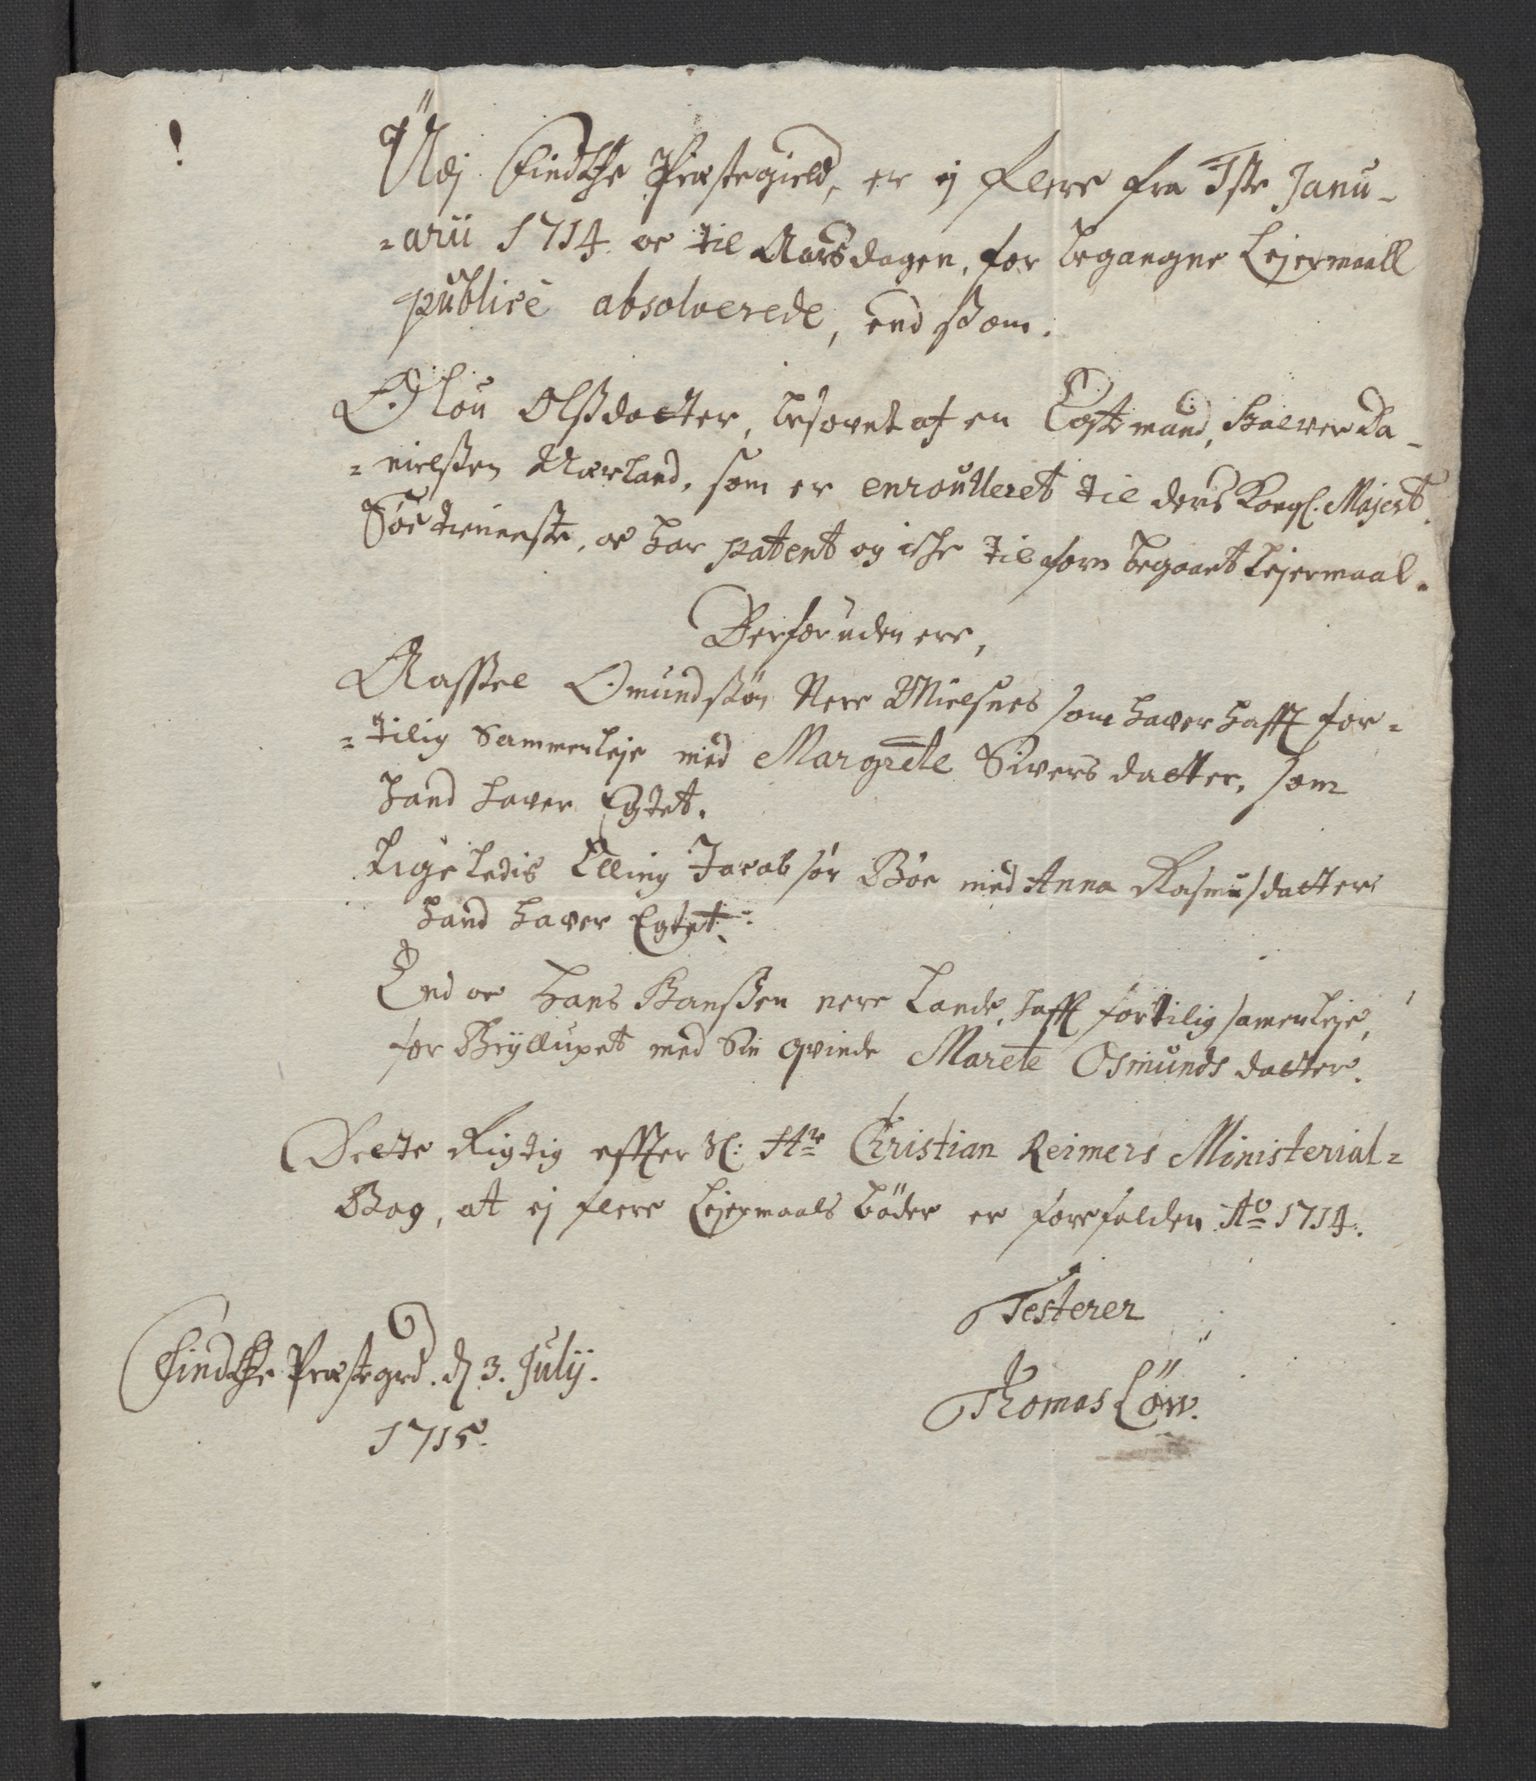 Udj Findøe Præstegield, er ej flere fra 1ste Janu-
-arii 1714 oc til Aarsdagen, for begangne Lejermaall
publicè absolverede, end som.
Olou Olsdaatter, besovet af en Løstmand, Halver Da-
-nielssen Nærland, som er enroulleret til ders Kongl. Majest.
Søe tieneste, oc har patent og icke tilforn begaaet Lejermaal.
Derforuden ere,
Aassel Omundssøn Nere Mielsnes som haver hafft for-
=tilig Sammenleje med Margrete Siversdatter, som
hand haver Egtet.
Lige ledis Elling Jacobsør Bøe med Anna Rasmusdatter
hand haver Egtet.
End oc Hans Hanssen nere Lande, hafft fortilig samenleje,
for Bryllupet med Sin qvinde Marete Osmundsdatter.
Dette Rigtig effter Sl: Hr Christian Reimers Ministerial=
Bog, at ej flere Lejermaals bøder er forefalden Ao 1714.
Testerer
Findøe Præstegrd. d 3. Julij.
1715.
Thomas Löw.